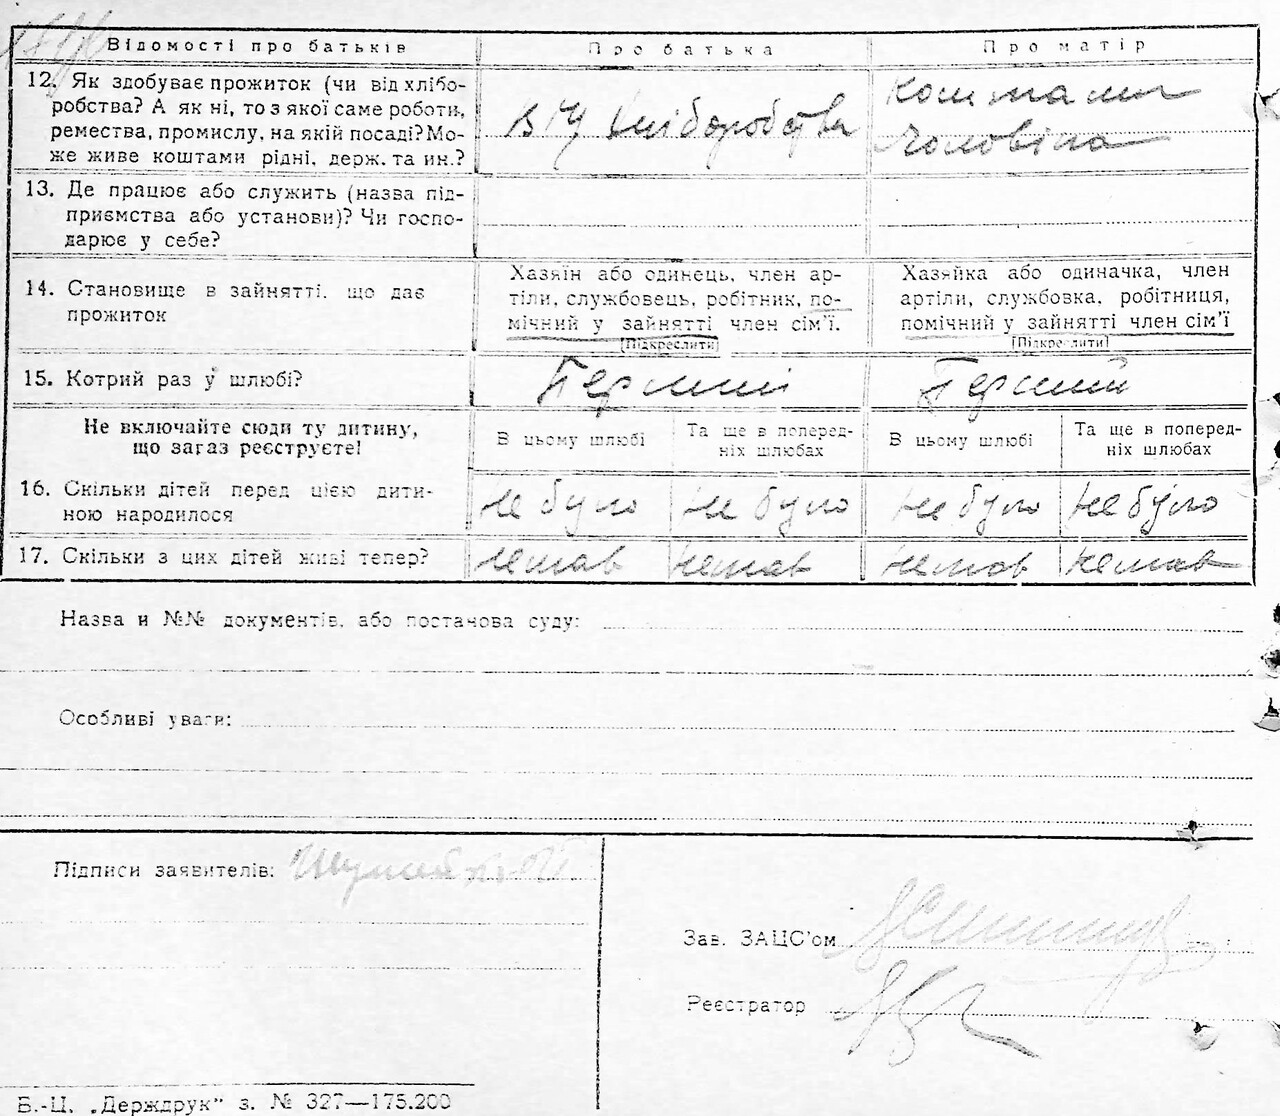 Відомості про батьків
Про батька
Про матір
12. Як здобуває прожиток (чи від хлібо-
робства? А як ні, то з якої саме роботи,
ремества, промислу, на якій посаді? Мо-
же живе коштами рідні, держ. та ин.?
хліборобства
Коштами
Чоловіка
13. Де працює або служить (назва під-
приємства або установи)? Чи госпо-
дарює у себе?
14. Становище в зайнятті, що дає
прожиток
Хазяїн або одинець, член ар-
тіли, службовець, робітник, по-
мічний у зайнятті член сім'ї.
[Підкреслити]
Хазяйка або одиначка, член
артіли, службовка, робітниця,
помічний у зайнятті член сім'ї
[Підкреслити]
15. Котрий раз у шлюбі?
Перший
Перший
Не включайте сюди ту дитину,
що загаз реєструєте!
В цьому шлюбі
Та ще в поперед-
ніх шлюбах
В цьому шлюбі
Та ще в поперед-
ніх шлюбах
16. Скільки дітей перед цією дити-
ною народилося
не було
не було
не було
не було
17. Скільки з цих дітей живі тепер?
немає
немає
немає
немає
Назва и №№ документів, або постанова суду:
Особливі уваги:
Підписи заявителів:
Зав. ЗАЦС'ом
Реєстратор
Б.-Ц. „Держдрук" з. № 327—175.200